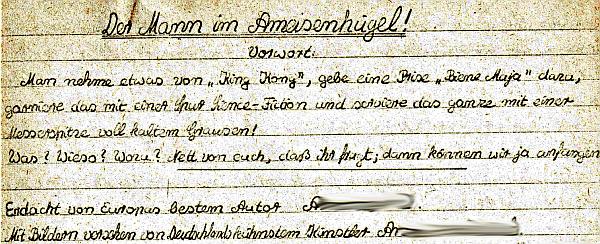 Der Mann im Ameisenhügel!
Vorwort:
Man nehme etwas von „King Kong", gebe eine Prise „Biene Maja" dazu,
garniere das mit einer Spur Sience-Fiction und serviere das ganze mit einer
Messerspitze voll kaltem Grausen!
Was? Wieso? Wozu? Nett von euch, daß ihr fragt; dann können wir ja anfangen
Erdacht von Europas bestem Autor A
Mit Bildern versehen von Deutschlands kühnstem Künstler An